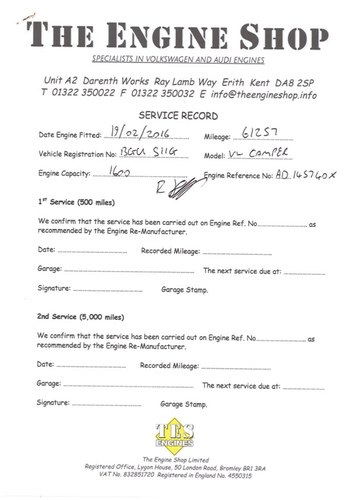 THE ENGINE SHOP
SPECIALISTS IN VOLKSWAGEN AND AUDI ENGINES
Unit A2 Darenth Works Ray Lamb Way Erith Kent DA8 2SP
T 01322 350022 F 01322 350032 E info@theengineshop.info
SERVICE RECORD
Date Engine Fitted: 19/02/2016 Mileage: 61257
Vehicle Registration No: Model: VW CAMPER
Engine Capacity: 1600 Engine Reference No: AD 145740X
1st Service (500 miles)
We confirm that the service has been carried out on Engine Ref. No. as
recommended by the Engine Re-Manufacturer.
Date: Recorded Mileage:
Garage: The next service due at:
Signature: Garage Stamp.
2nd Service (5,000 miles)
We confirm that the service has been carried out on Engine Ref. No. as
recommended by the Engine Re-Manufacturer.
Date: Recorded Mileage:
Garage: The next service due at:
Signature: Garage Stamp.
TES
ENGINES
The Engine Shop Limited
Registered Office, Lygon House, 50 London Road, Bromley BR1 3RA
VAT No. 832851720 Registered in England No. 4550315